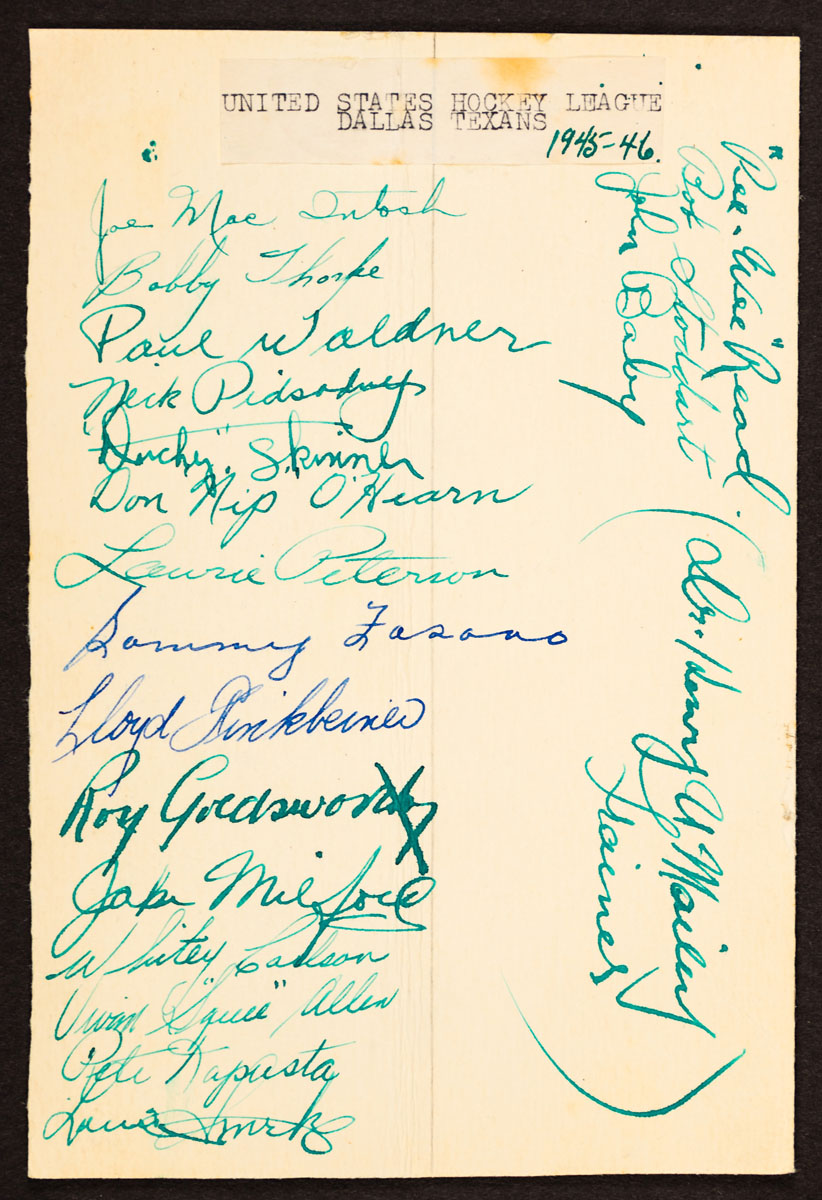 UNITED STATES HOCKEY LEAGUE
DALLAS TEXANS
1945-46.
Joe Mac Intosh
Bobby Thorpe
Paul Waldner
Nick Pidsodny
"Duchy" Skinner
Don "Nip" O'Hearn
Laurie Peterson
Sammy Fasano
Lloyd Finkbeiner
Roy Goldsworthy
Jake Milford
Whitey Carlson
Vivan "Squee" Allen
Pete Kapusta
Louis
"Pee-Wee" Read.
Bob Stoddart
John Baby
(Dr. Henry
Trainer)